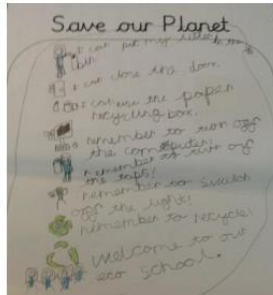 Save our Planet
I can put my litter in the
bin.
I can close the door.
I can use the paper
recycling box.
remember to turn off
the computer!
remember to turn of
the taps!
remember to switch
off the light!
remember to recycle!
Welcome to our
eco school.